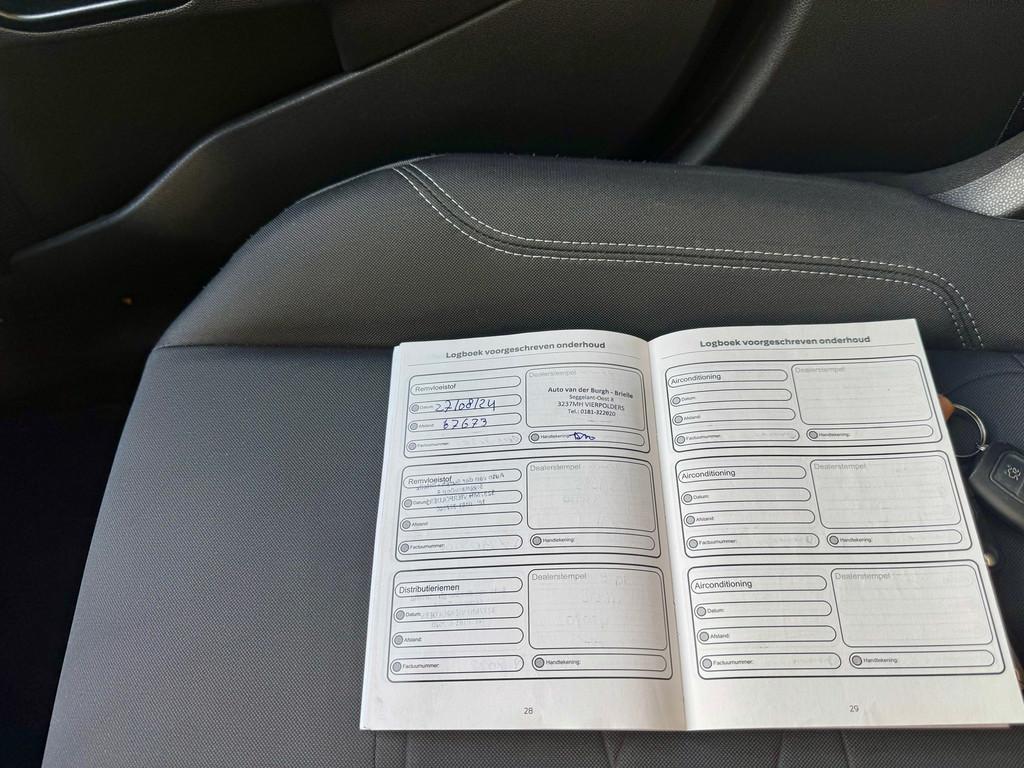 Logboek voorgeschreven onderhoud
Remvloeistof
Datum: 27/08/24
Afstand: 67673
Factuurnummer:
Dealerstempel
Auto van der Burgh - Brielle
Seggelant-Oost 8
3237MH VIERPOLDERS
Tel.: 0181-322020
Handtekening:
Remvloeistof
Datum:
Afstand:
Factuurnummer:
Dealerstempel
Handtekening:
Distributieriemen
Datum:
Afstand:
Factuurnummer:
Dealerstempel
Handtekening:
28
Logboek voorgeschreven onderhoud
Airconditioning
Datum:
Afstand:
Factuurnummer:
Dealerstempel
Handtekening:
Airconditioning
Datum:
Afstand:
Factuurnummer:
Dealerstempel
Handtekening:
Airconditioning
Datum:
Afstand:
Factuurnummer:
Dealerstempel
Handtekening:
29